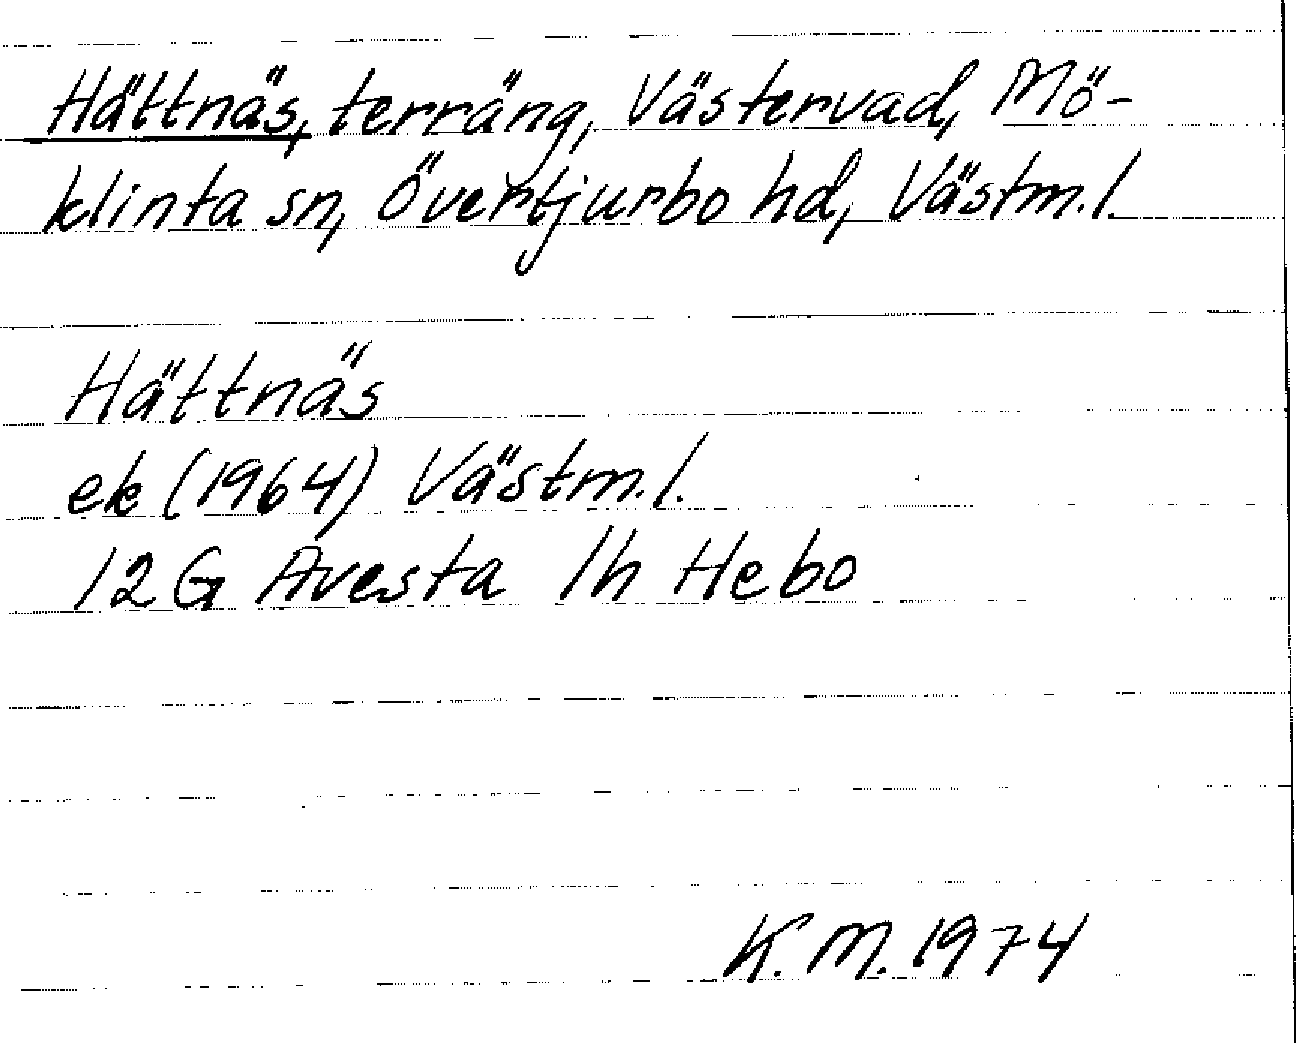 Hättnäs, terräng, Västervad, Mö-
klinta sn, Övertjurbo hd, Västm.l.
Hättnäs
ek (1964) Västm.l.
12G Avesta 1h Hebo
K.M. 1974